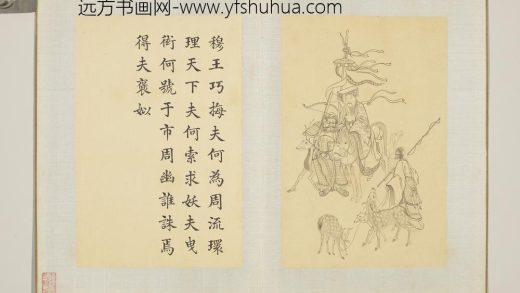 远方书画网-www.yfshuhua.com
穆王巧梅夫何為周流環
理天下夫何索求妖夫曳
衒何號于市周幽誰誅焉
得夫褒姒